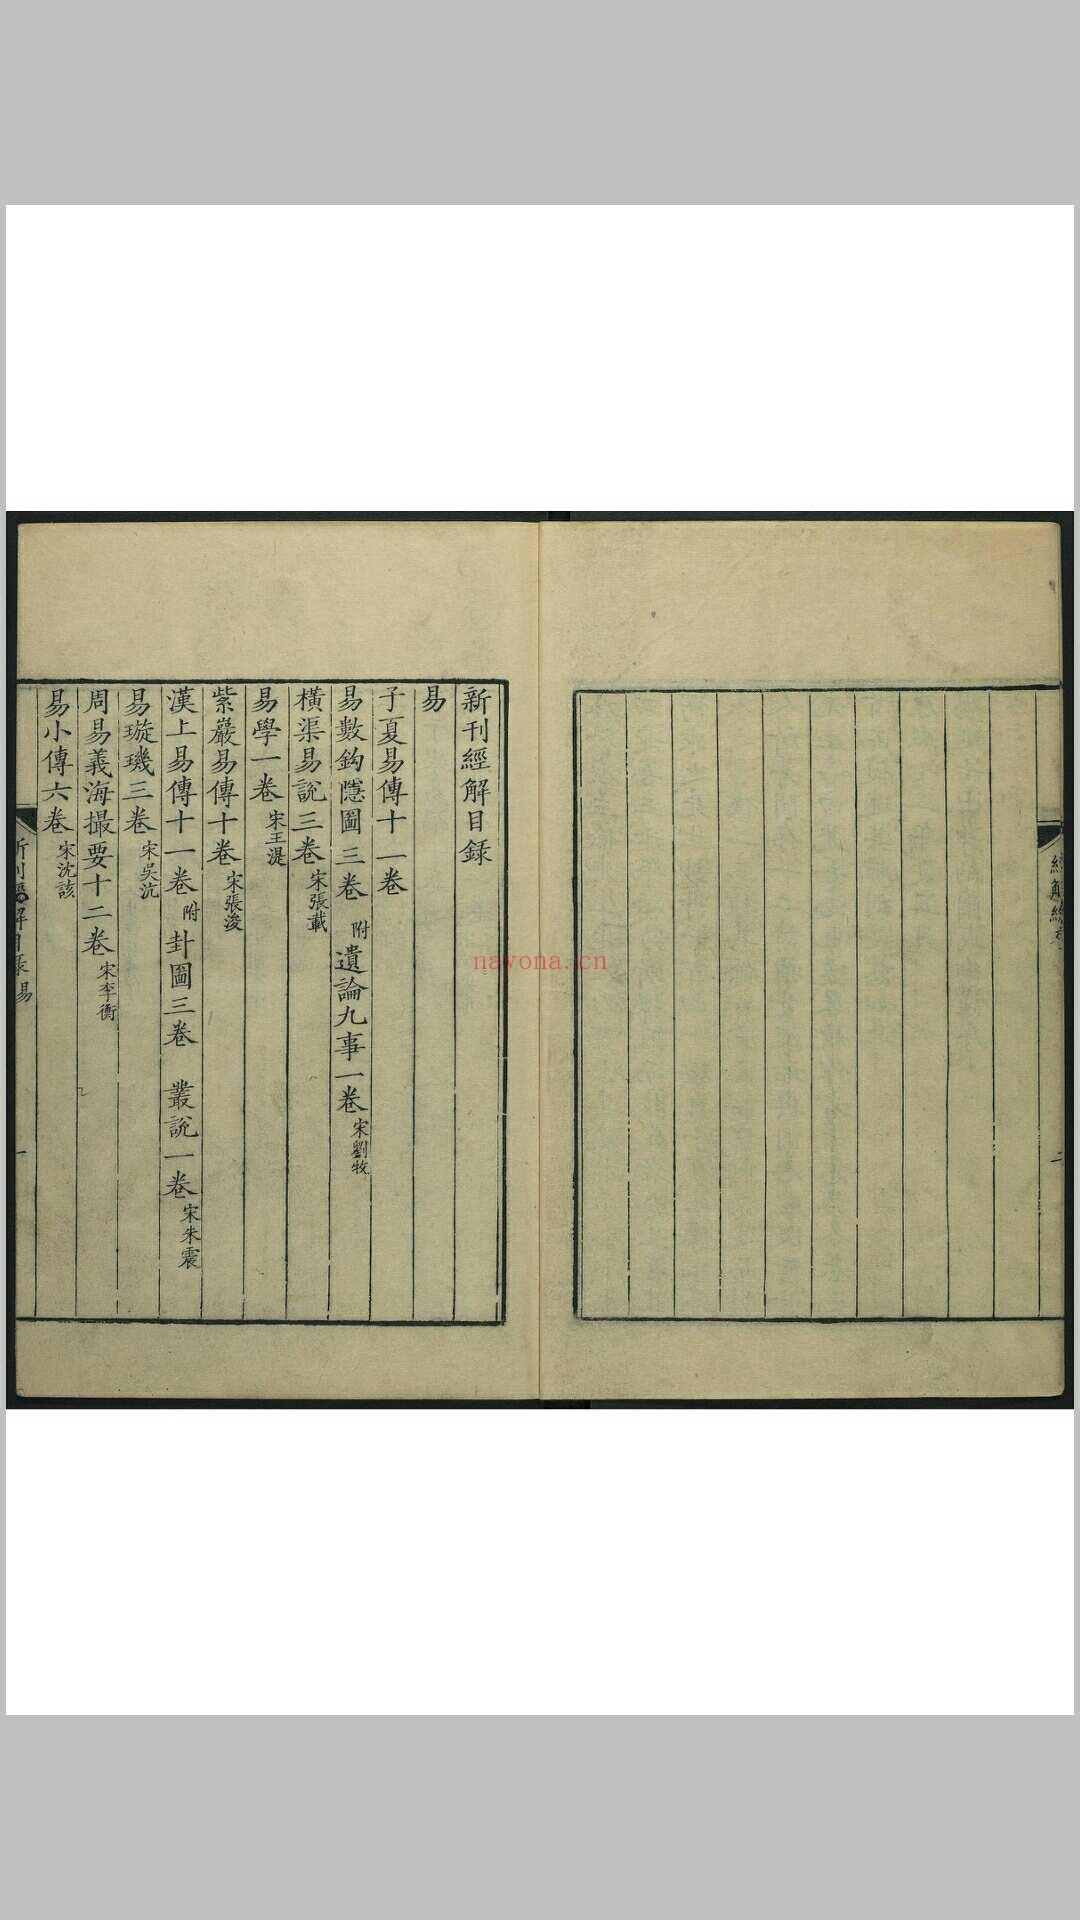 新刊經解目録
易
子夏易傳十一卷
易數鈎隱圖三卷 附 遺論九事一卷 宋劉牧
橫渠易說三卷 宋張載
易學一卷 宋王湜
紫巖易傳十卷 宋張浚
漢上易傳十一卷 附 卦圖三卷 叢說一卷 宋朱震
易璇璣三卷 宋吳沆
周易義海撮要十二卷 宋李衡
易小傳六卷 宋沈該
nayona.cn